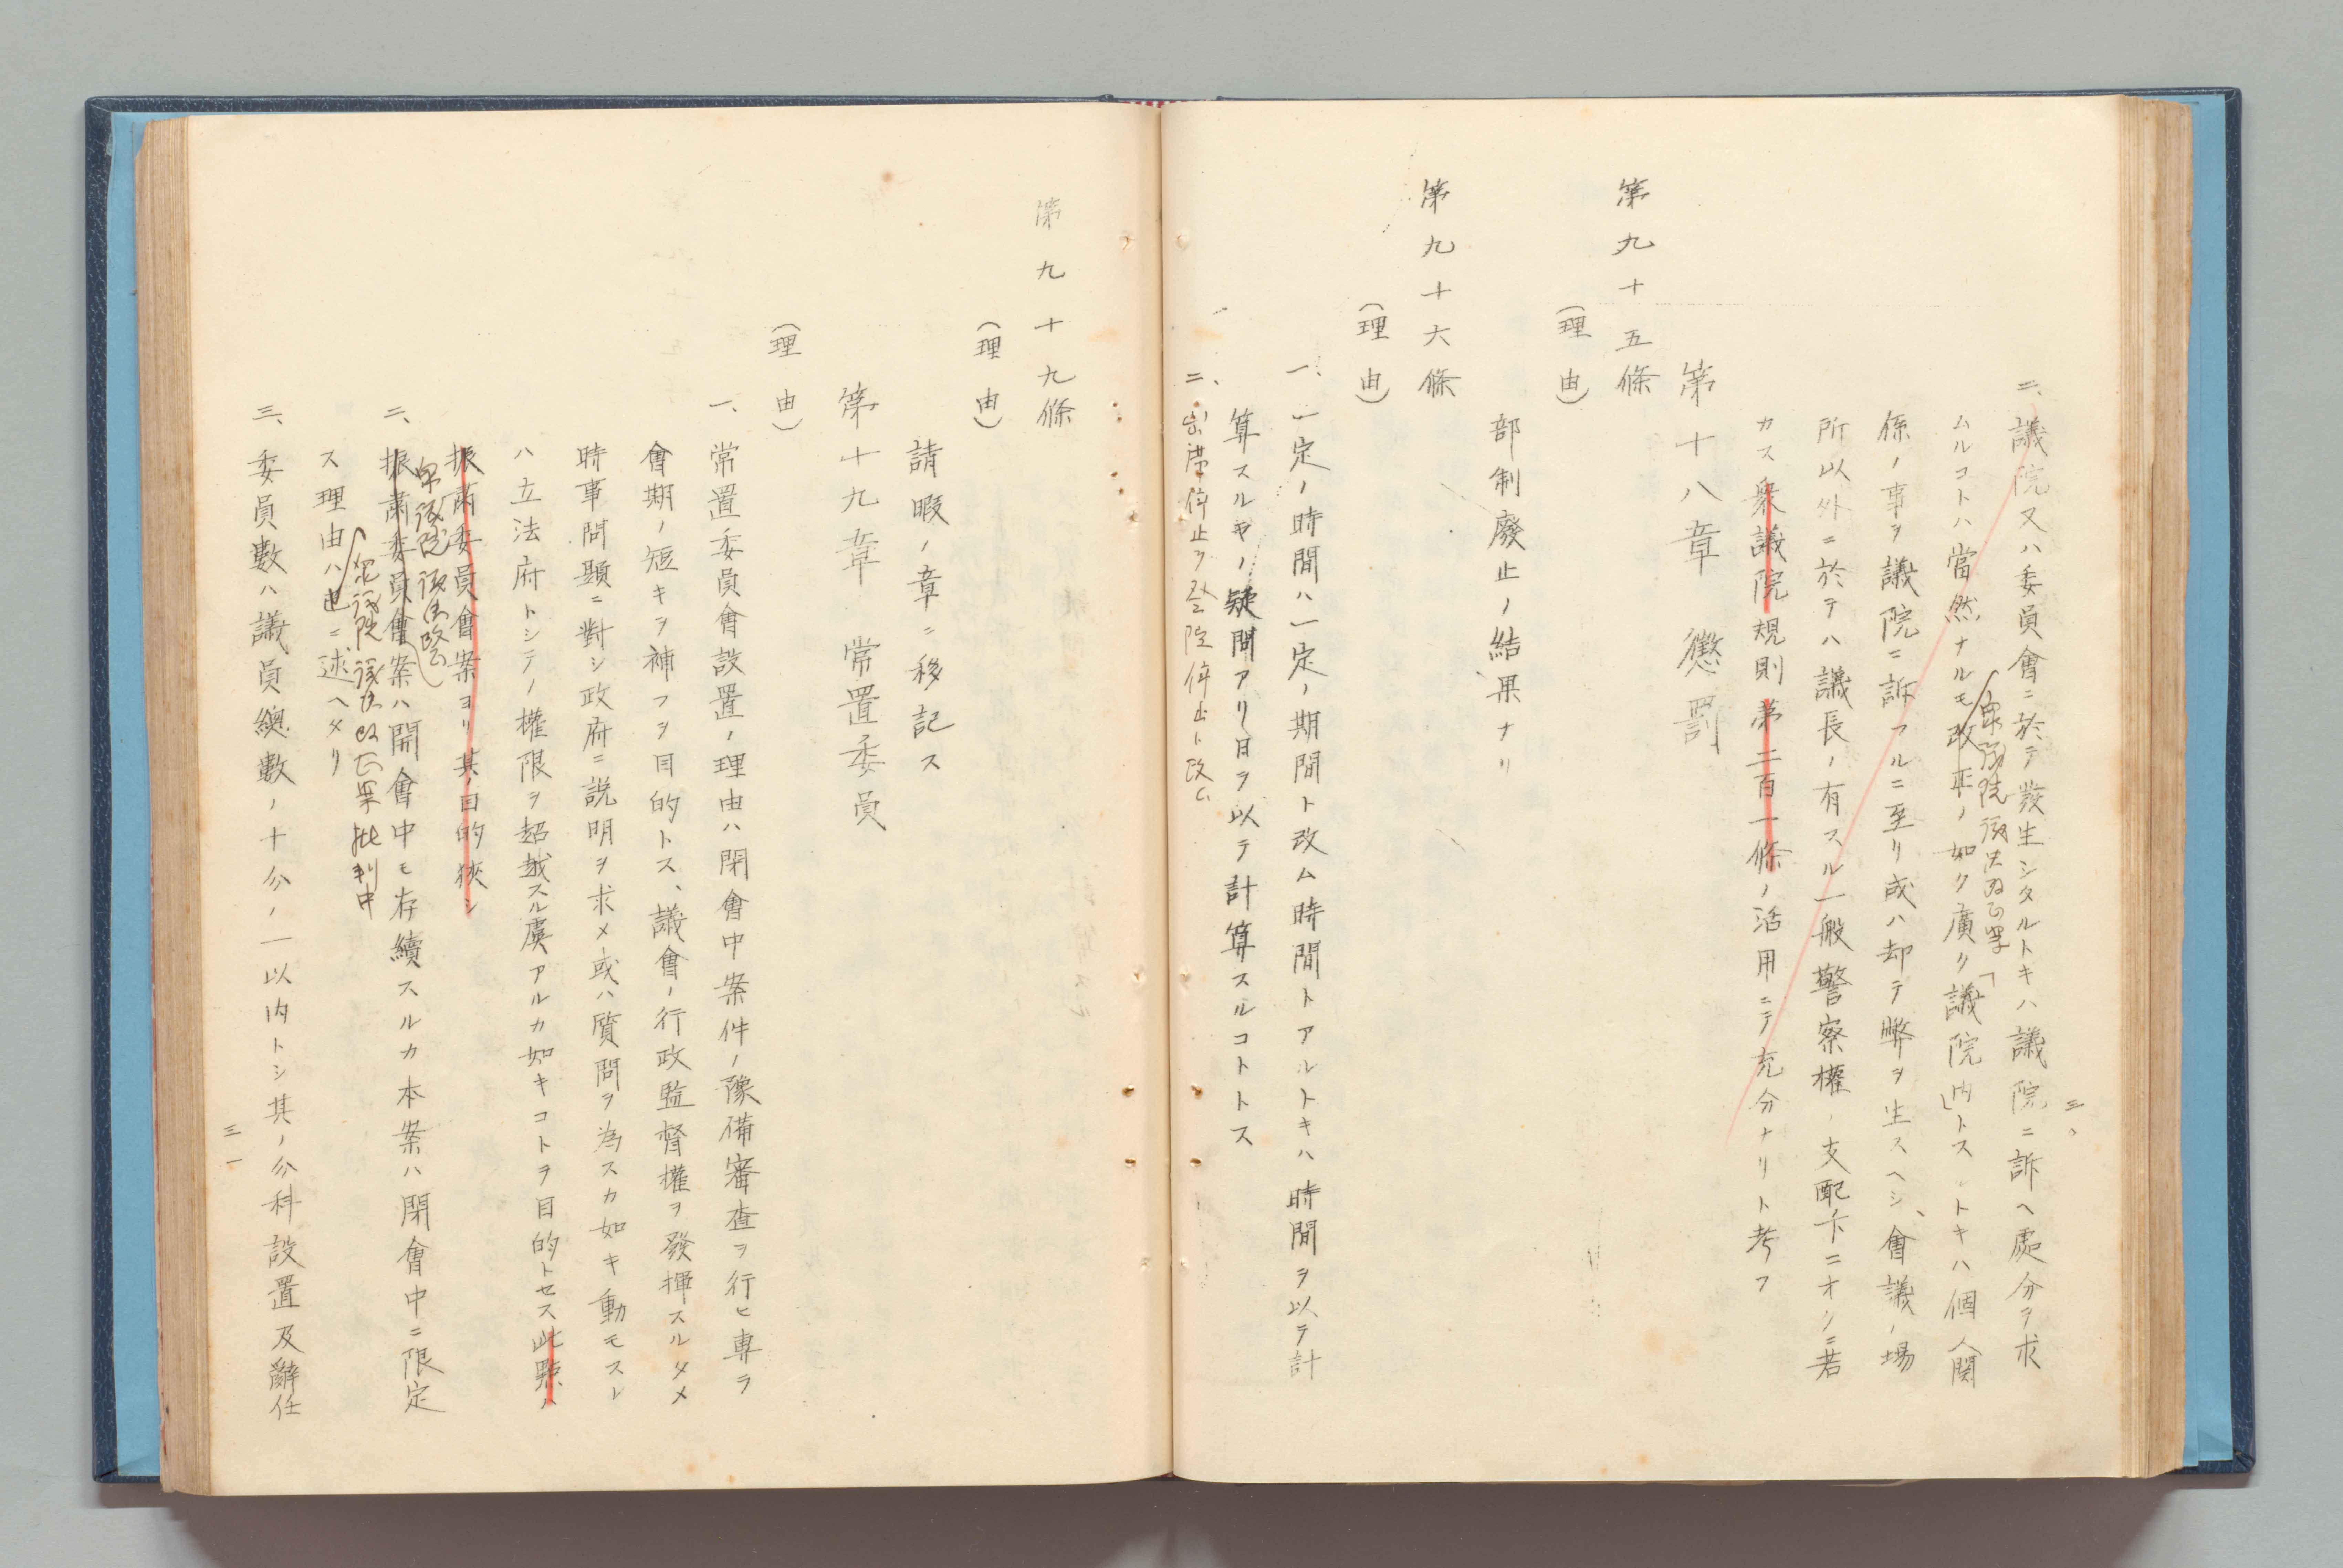 三〇
二、議院又ハ委員會ニ於テ發生シタルトキハ議院ニ訴ヘ處分ヲ求
ムルコトハ當然ナルモ改正ノ如ク廣ク「議院内」トスルトキハ個人関
衆議院議法改正案
係ノ事ヲ議院ニ訴フルニ至リ或ハ却テ弊ヲ生スヘシ、會議ノ場
所以外ニ於テハ議長ノ有スル一般警察權ノ支配下ニオクニ若
カス衆議院規則第二百一條ノ活用ニテ充分ナリト考フ
第十八章 懲罰
第九十五條
(理由)
部制廢止ノ結果ナリ
第九十六條
(理由)
一、「一定ノ時間ハ」一定ノ期間ト改ム時間トアルトキハ時間ヲ以テ計
算スルヤノ疑問アリ日ヲ以テ計算スルコトトス
二、出席停止ヲ登院停止ト改ム
第九十九條
(理由)
請暇ノ章ニ移記ス
第十九章 常置委員
(理由)
一、常置委員會設置ノ理由ハ閉會中案件ノ豫備審査ヲ行ヒ專ラ
會期ノ短キヲ補フヲ目的トス、議會ノ行政監督權ヲ發揮スルタメ
時事問題ニ對シ政府ニ説明ヲ求メ或ハ質問ヲ為スカ如キ動モスレ
ハ立法府トシテノ權限ヲ超越スル虞アルカ如キコトヲ目的トセス此點ハ
振肅委員會案ヨリ其ノ目的狹シ
衆議院議法改正
二、振肅委員會案ハ開會中モ存續スルカ本案ハ閉會中ニ限定
衆議院議法改正案批判中
ス理由ハ ニ述ヘタリ
三、委員數ハ議員總數ノ十分ノ一以内トシ其ノ分科設置及辭任
三一